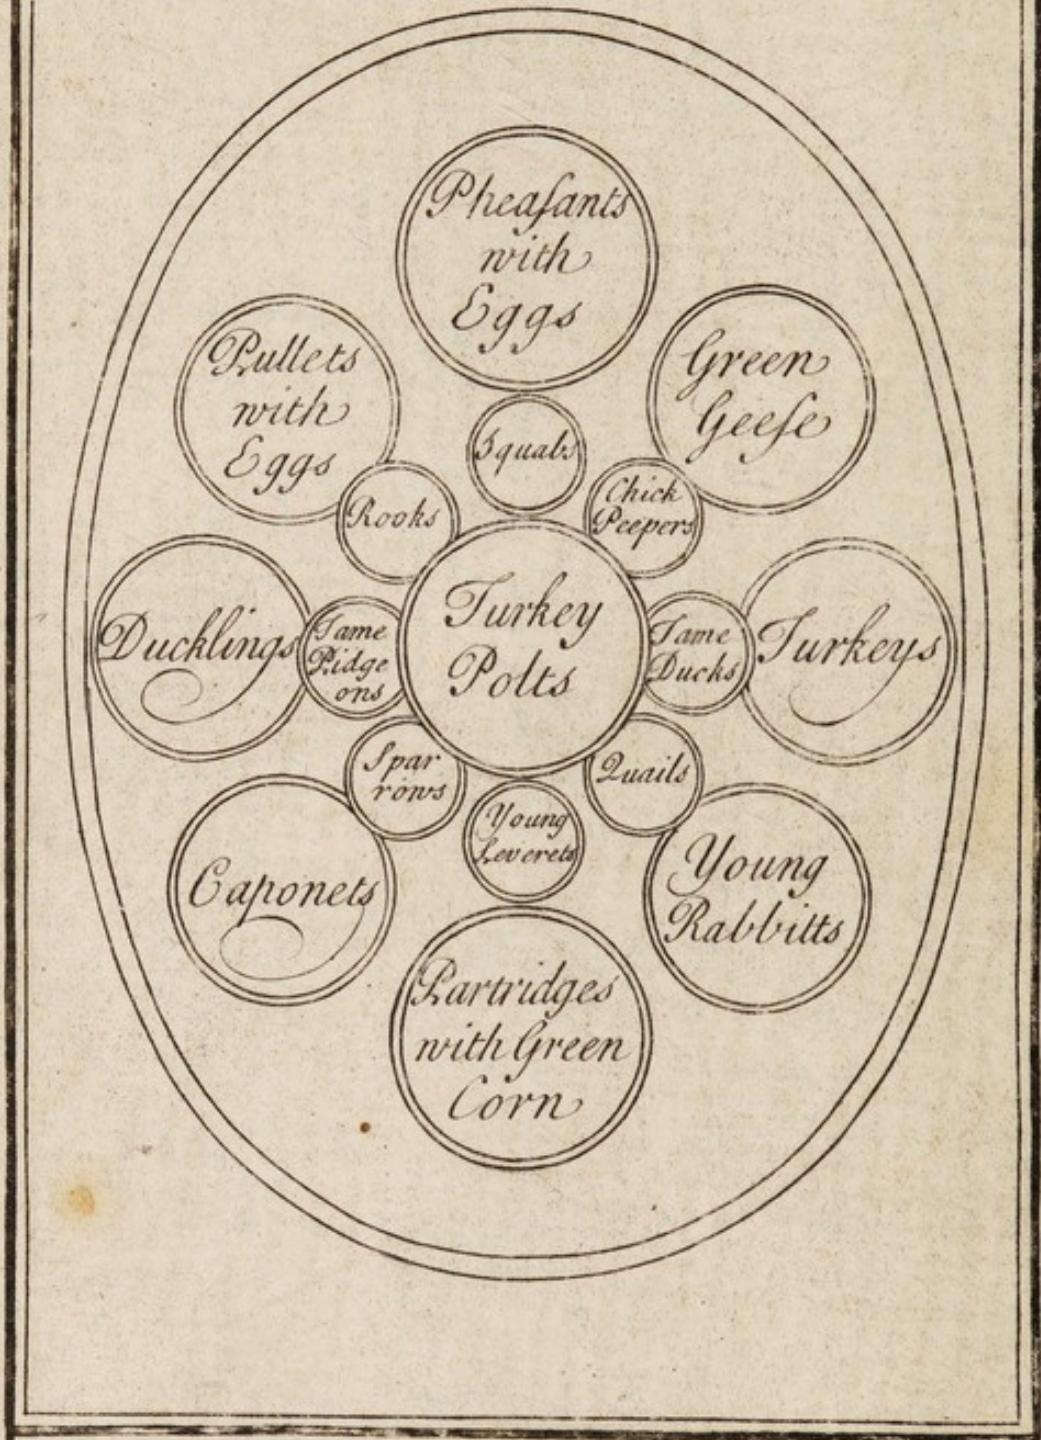 Pheaſants
with
Eggs
Pullets
with
Eggs
Green
Geeſe
Squabs
Rooks
Chick
Peepers
Ducklings
Tame
Pidge
ons
Turkey
Polts
Tame
Ducks
Turkeys
Spar
rows
Quails
Young
Leverets
Caponets
Young
Rabbitts
Partridges
with Green
Corn